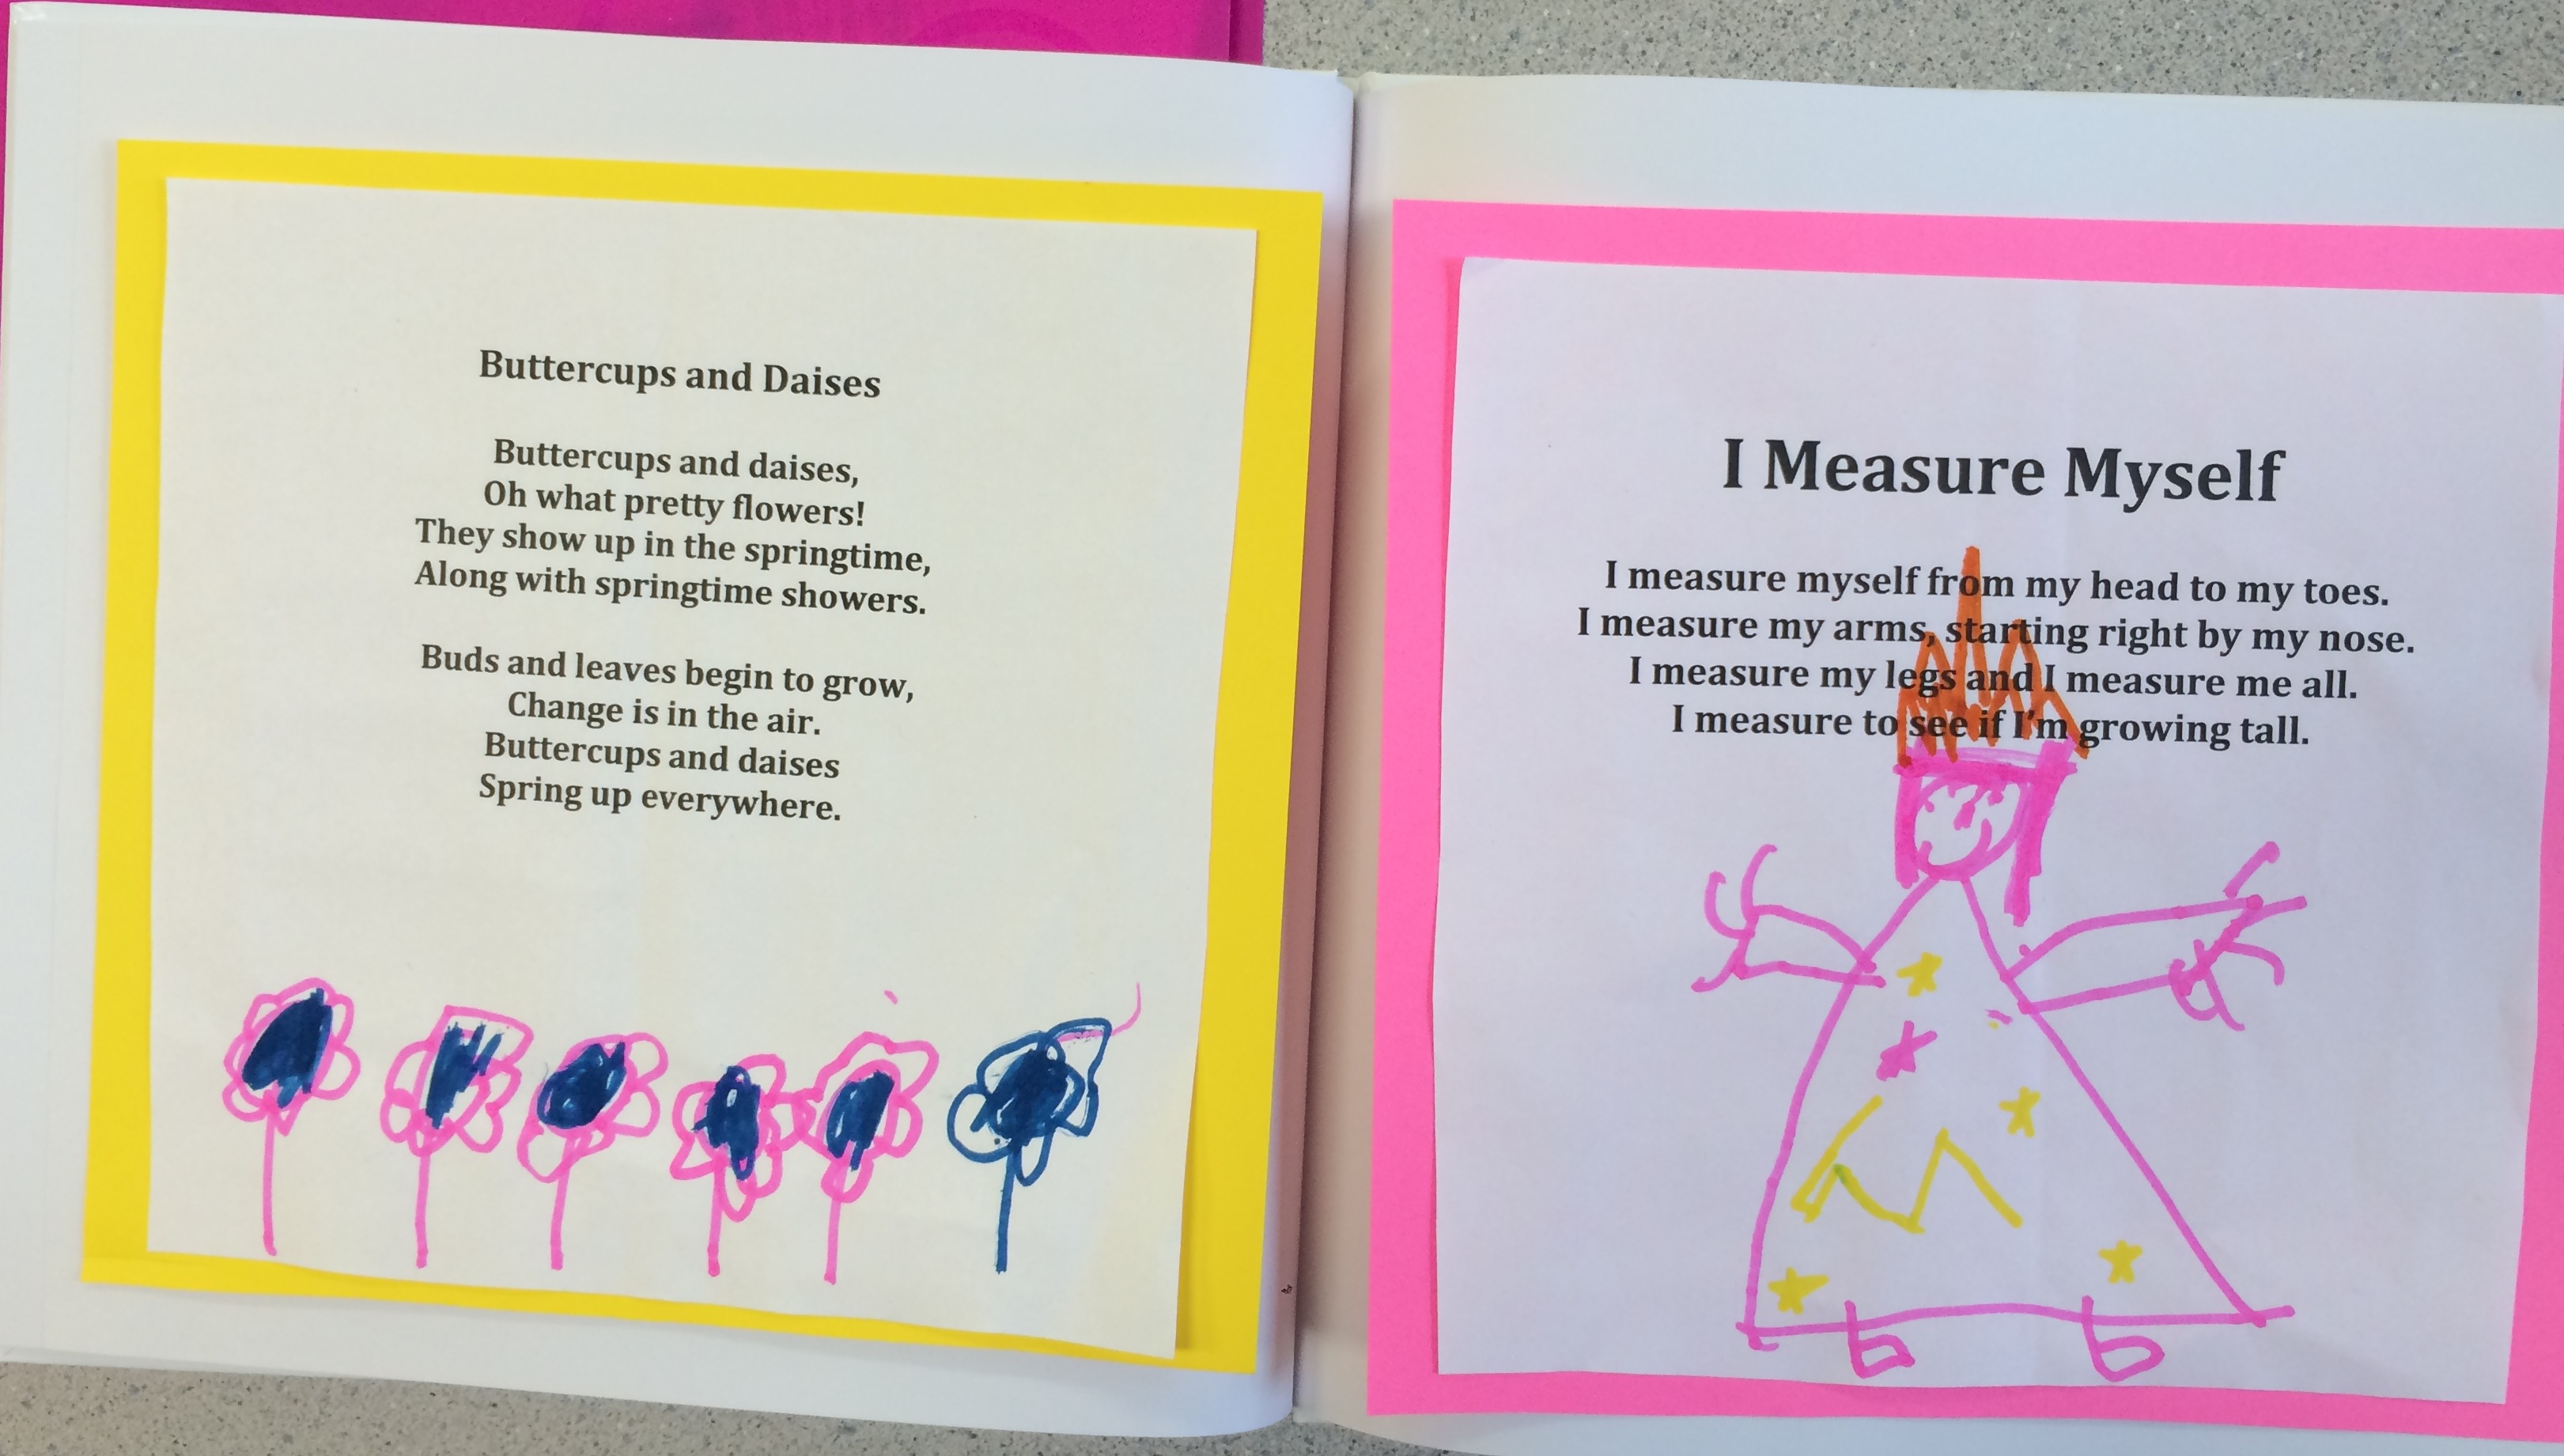 Buttercups and Daises
Buttercups and daises,
Oh what pretty flowers!
They show up in the springtime,
Along with springtime showers.
Buds and leaves begin to grow,
Change is in the air.
Buttercups and daises
Spring up everywhere.
I Measure Myself
I measure myself from my head to my toes.
I measure my arms, starting right by my nose.
I measure my legs and I measure me all.
I measure to see if I'm growing tall.